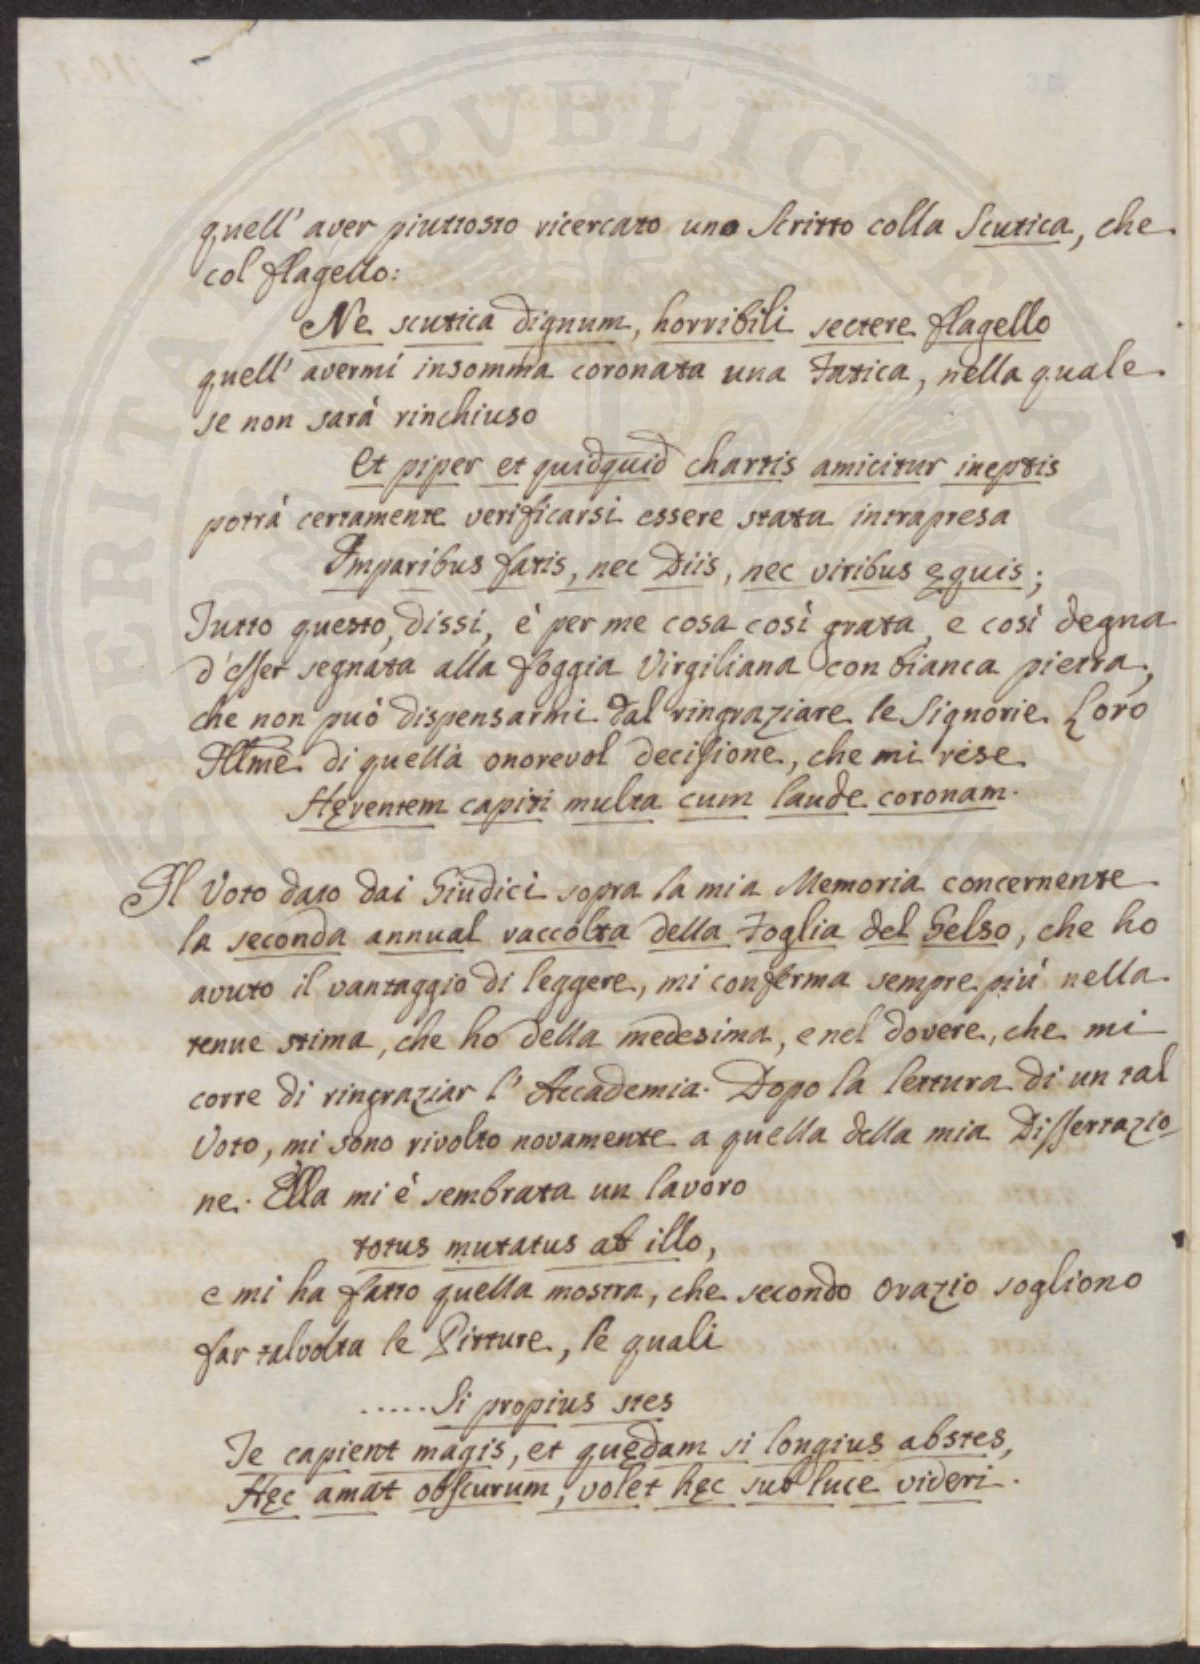 quell' aver piuttosto ricercato uno Scritto colla Scutica, che
col flagello:
Ne scutica dignum, horribili sectere flagello
quell' avermi insomma coronata una Fatica, nella quale
se non sarà rinchiuso
Et piper et quidquid chartis amicitur ineptis
potrà certamente verificarsi essere stata intrapresa
Imparibus fatis, nec Diis, nec viribus ęquis;
Tutto questo, dissi, è per me cosa così grata, e così degna
d'esser segnata alla foggia Virgiliana con bianca pietra,
che non può dispensarmi dal ringraziare le Signorie Loro
Illme di quella onorevol decisione, che mi rese
Hęrentem capiti multa cum laude coronam.
Il Voto dato dai Giudici sopra la mia Memoria concernente
la seconda annual raccolta della Foglia del Gelso, che ho
avuto il vantaggio di leggere, mi conferma sempre più nella
tenue stima, che ho della medesima, e nel dovere, che mi
corre di ringraziar l' Accademia. Dopo la lettura di un tal
Voto, mi sono rivolto novamente a quella della mia Dissertazio-
ne. Ella mi è sembrata un lavoro
totus mutatus ab illo,
e mi ha fatto quella mostra, che secondo Orazio sogliono
far talvolta le Pitture, le quali
..... Si propius stes
Te capient magis, et quędam si longius abstes,
Hęc amat obscurum, volet hęc sub luce videri.
PUBLICAE